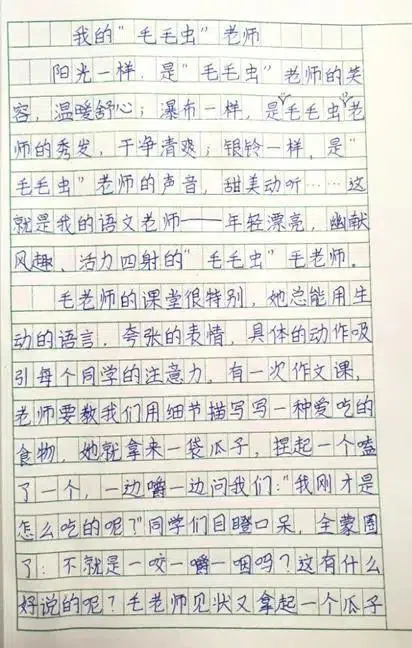 我的“毛毛虫”老师
阳光一样，是“毛毛虫”老师的笑
容，温暖舒心；瀑布一样，是“毛毛虫”老
师的秀发，干净清爽；银铃一样，是“
毛毛虫”老师的声音，甜美动听……这
就是我的语文老师——年轻漂亮，幽献
风趣，活力四射的“毛毛虫”毛老师。
毛老师的课堂很特别，她总能用生
动的语言，夸张的表情，具体的动作吸
引每个同学的注意力。有一次作文课，
老师要教我们用细节描写写一种爱吃的
食物，她就拿来一袋瓜子，捏起一个嗑
了一个，一边嚼一边问我们：“我刚才是
怎么吃的呢？”同学们目瞪口呆，全蒙圈
了：不就是一咬一嚼一咽吗？这有什么
好说的呢？毛老师见状又拿起一个瓜子